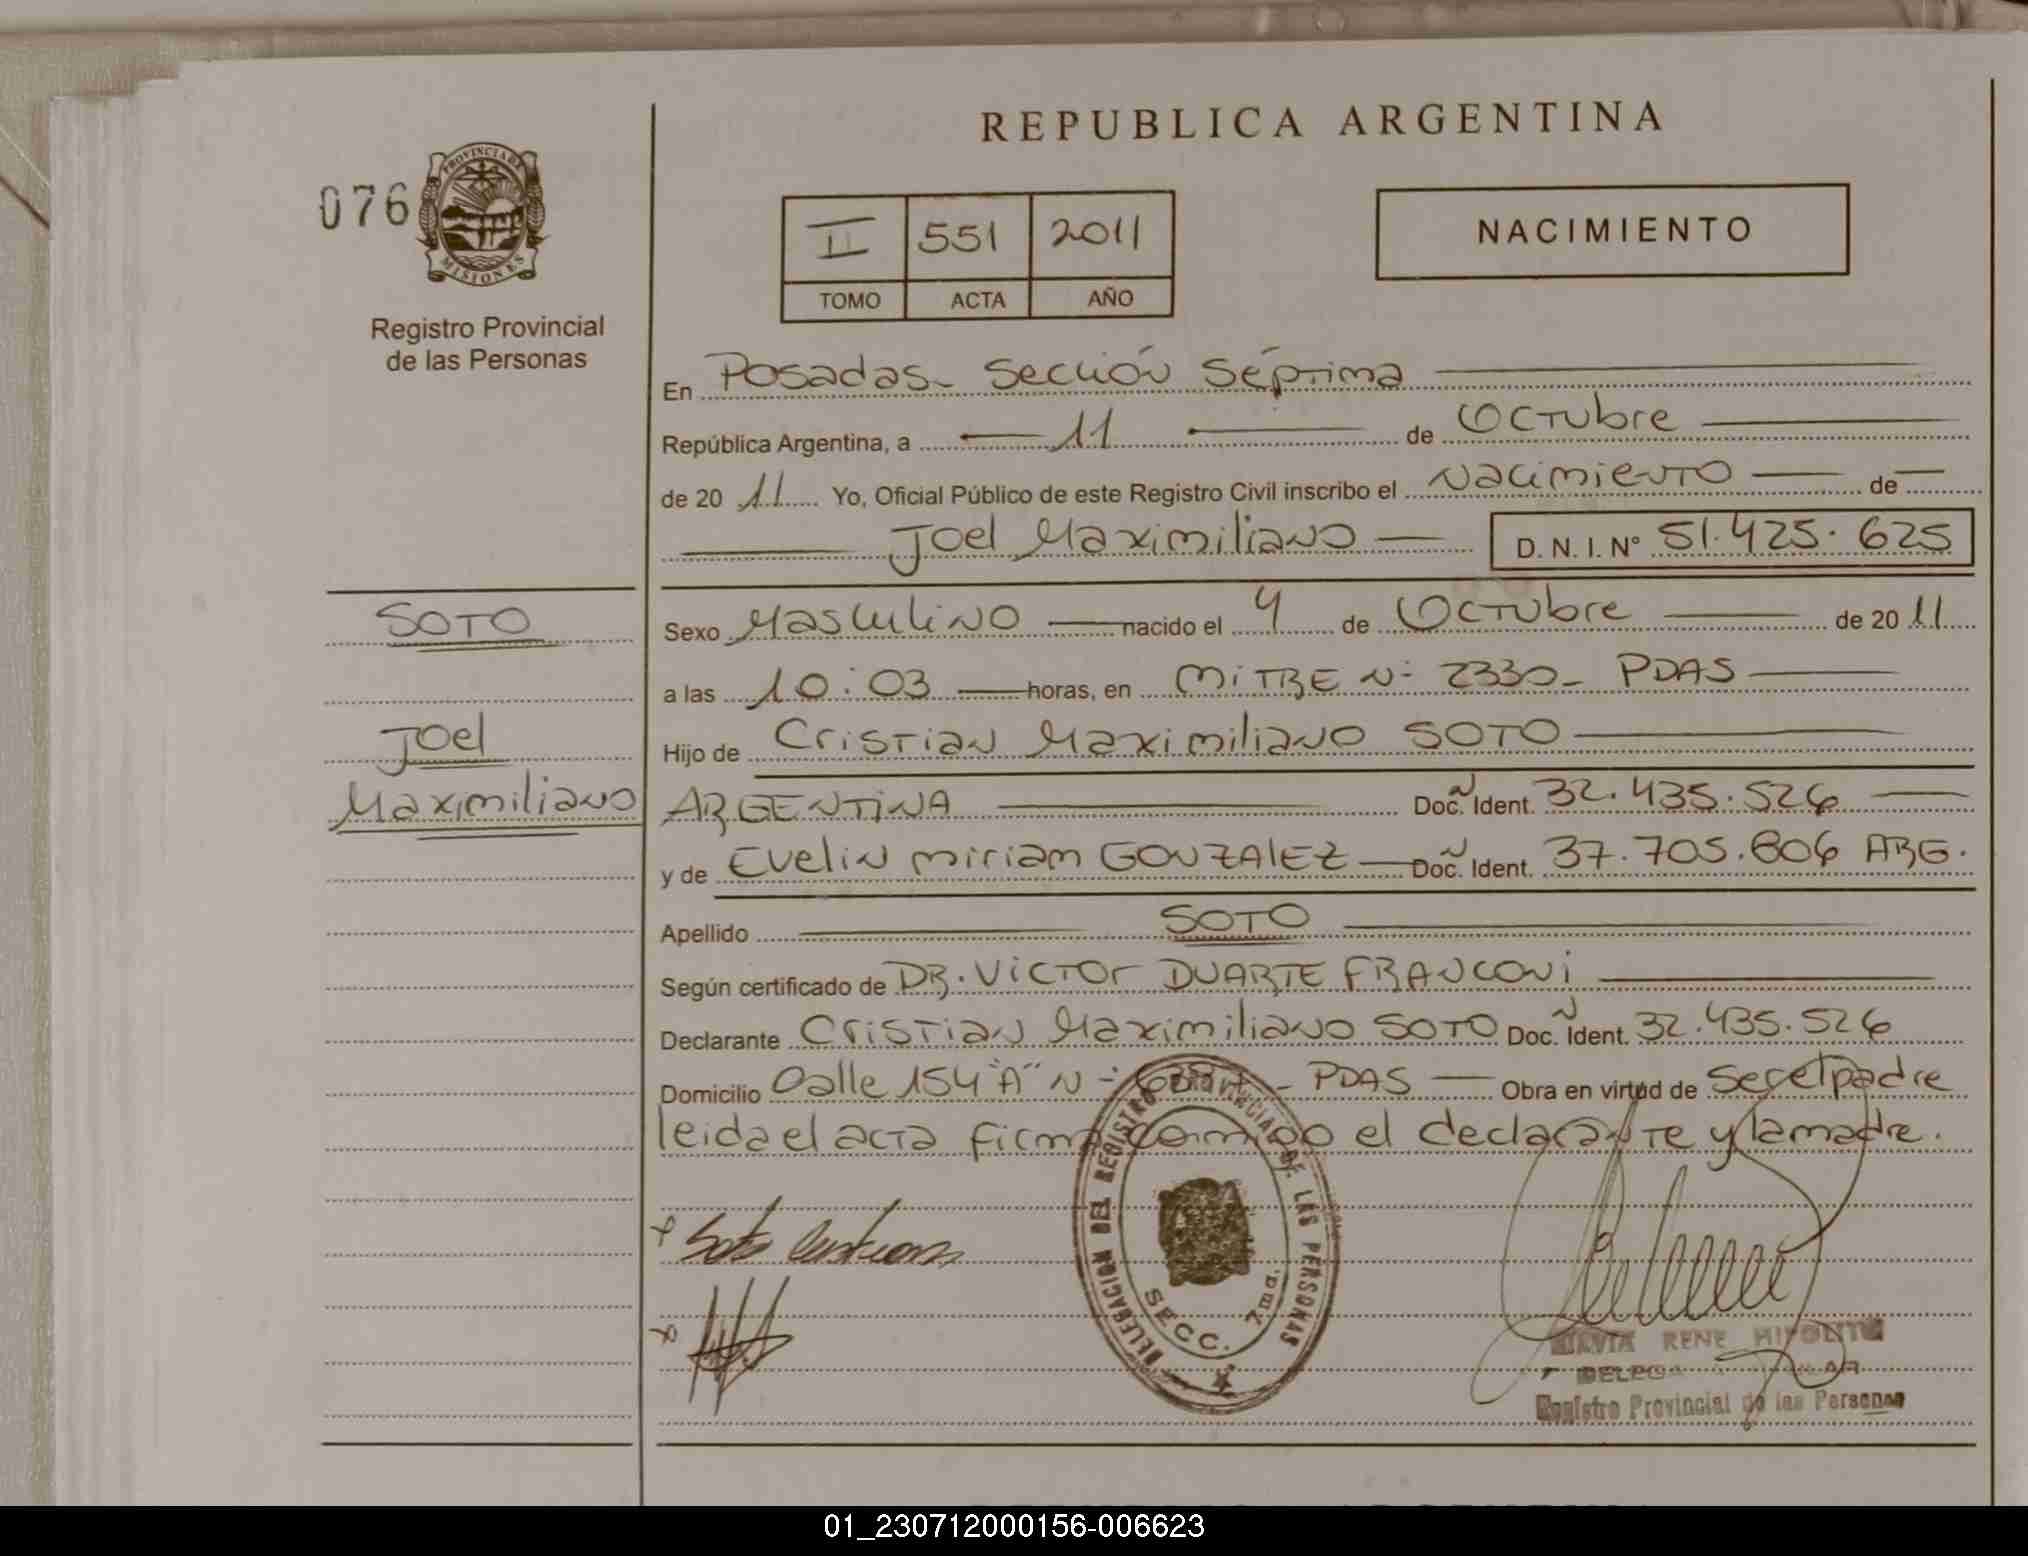 REPUBLICA ARGENTINA
076
PROVINCIA DE
MISIONES
Registro Provincial
de las Personas
II 551 2011
TOMO ACTA AÑO
NACIMIENTO
En Posadas- Sección Séptima
República Argentina, a 11 de Octubre
de 20 11 Yo, Oficial Público de este Registro Civil inscribo el Nacimiento de
Joel Maximiliano D. N. I. N° 51.425.625
SOTO
Joel
Maximiliano
Sexo Masculino nacido el 4 de Octubre de 20 11
a las 10:03 horas, en MITRE N- 2330- PDAS
Hijo de Cristian Maximiliano SOTO
ARGENTINA Doc. Ident. 32.435.526
y de Evelin miriam GONZALEZ Doc. Ident. 37.705.806 ARG.
Apellido SOTO
Según certificado de DR. Victor DUARTE FRANCONI
Declarante Cristian Maximiliano SOTO Doc. Ident. 32.435.526
Domicilio Calle 154 "A" N- - PDAS Obra en virtud de Ser el padre
leida el acta firma conmigo el declarante y la madre.
x Soto
x
DELEGACION DEL REGISTRO PROVINCIAL DE LAS PERSONAS
SECC. 7ma.
RENE HIPOLITO
Registro Provincial de las Personas
01_230712000156-006623